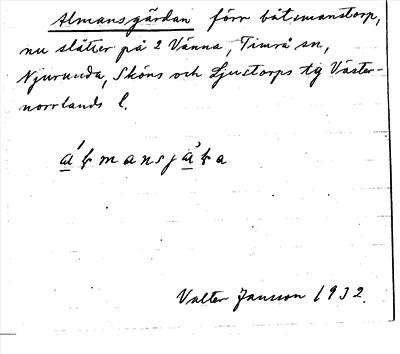 Almansgärdan förr båtsmanstorp,
nu slåtter på 2 Vänna, Timrå sn,
Njurunda, Sköns och Ljustorps tg Väster-
norrlands l.
Valter Jansson 1932.